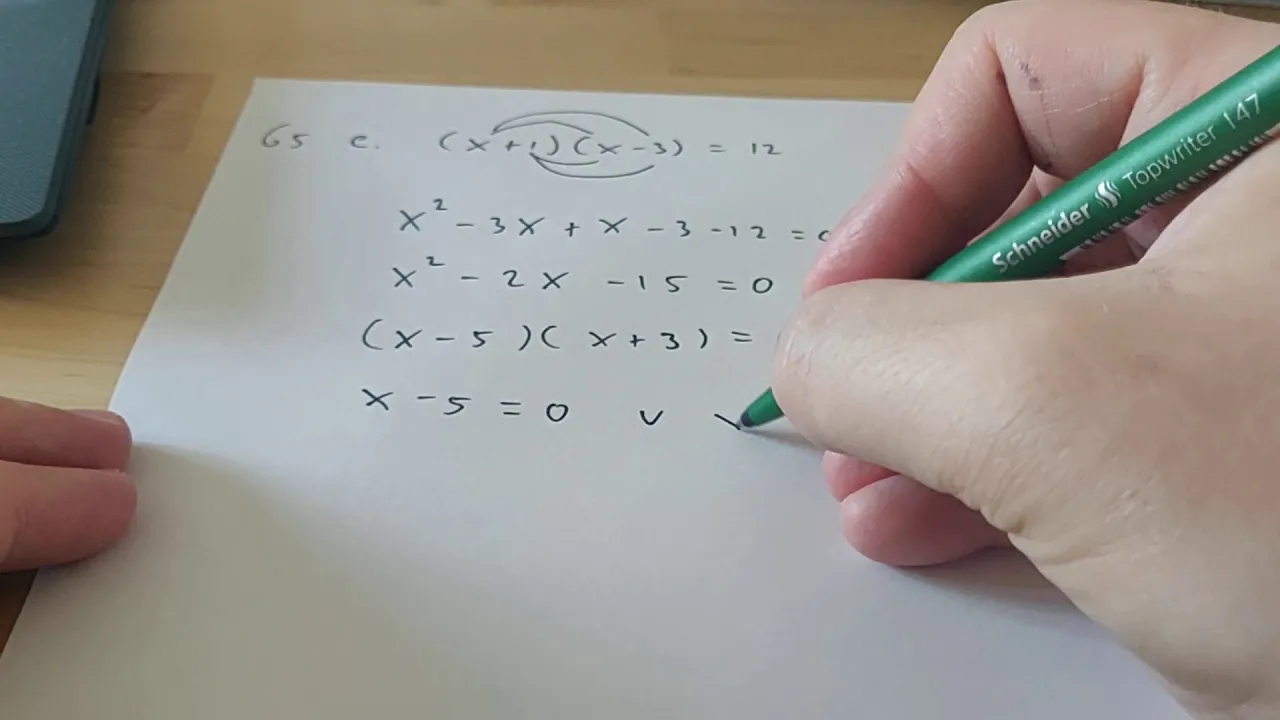 65 c. (x + 1)(x - 3) = 12
x² - 3x + x - 3 - 12 =
x² - 2x - 15 = 0
(x - 5)(x + 3) =
x - 5 = 0 v
Schneider Topwriter 147